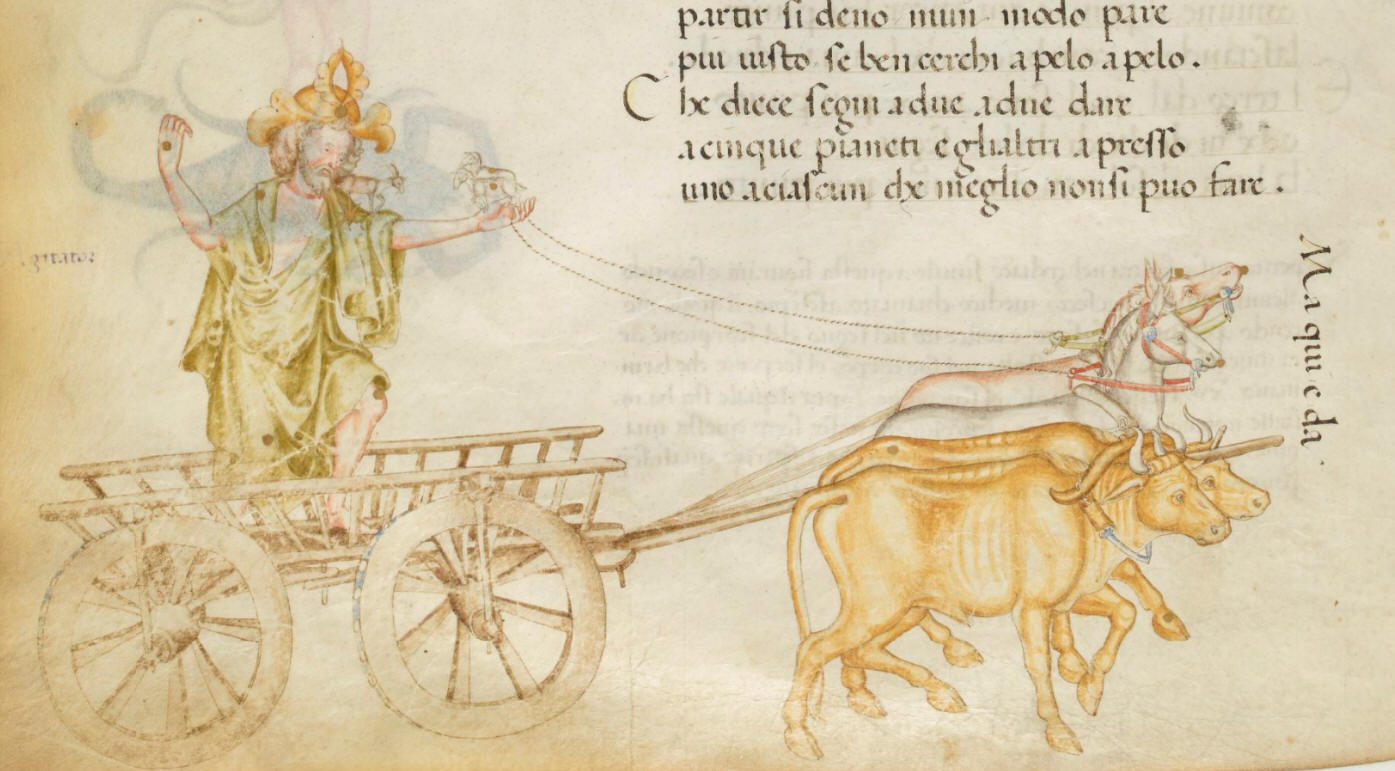 partir si deno num modo pare
piu iusto se ben cerchi a pelo a pelo.
Che diece segni a due a due dare
a cinque pianeti e gli altri a presso
uno a ciascun che meglio non si puo fare.
agitator
Ma qui e da.